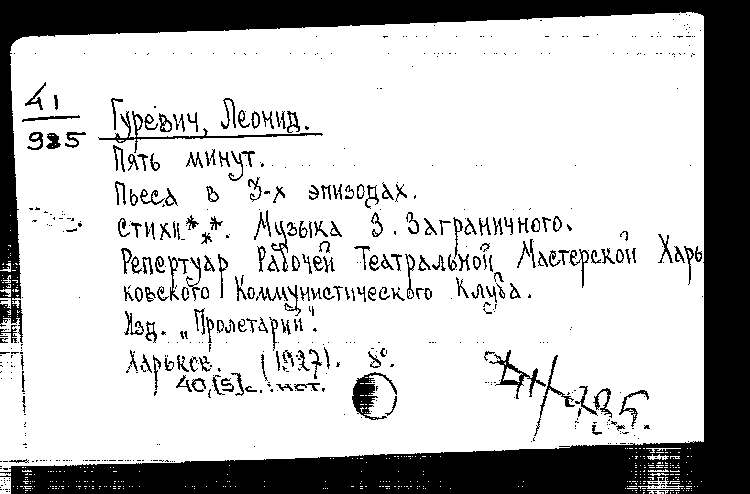 41
985
Гуревич, Леонид.
Пять минут.
Пьеса в 3-х эпизодах.
Стихи ***. Музыка З. Заграничного.
Репертуар Рабочей Театральной Мастерской Харь
ковского Коммунистического Клуба.
Изд. „Пролетарий".
Харьков. (1927). 8°.
40,[5]с. нот.
41/985.